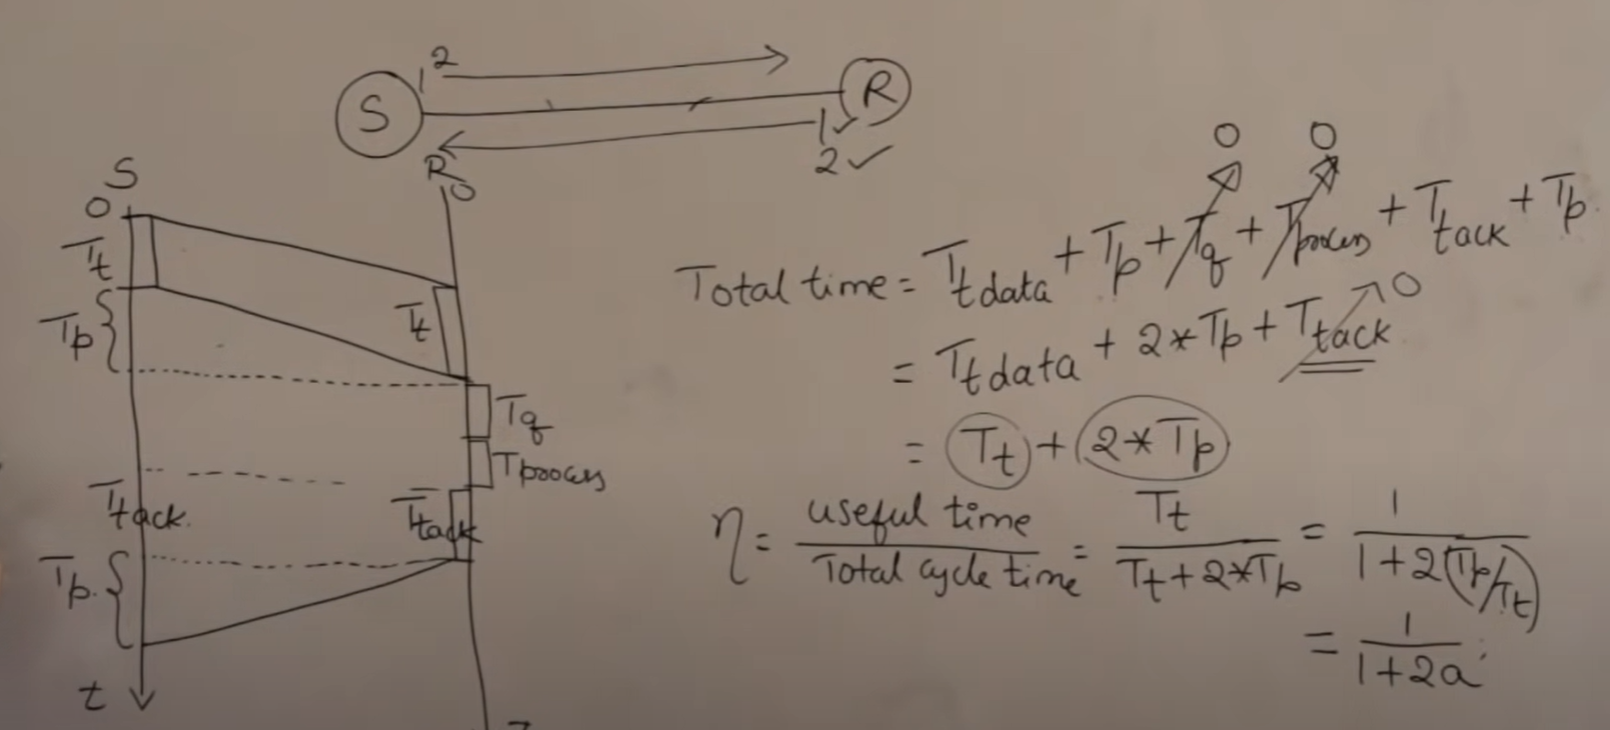 2
1
S
R
1✓
2✓
S
R
0
0
Tt
Tt
Tp
Tq
Tprocess
Ttack.
Ttack
Tp.
t
0 0
Total time = Tt data + Tp + Tq + Tprocess + Ttack + Tp
0
= Tt data + 2*Tp + Ttack
= Tt + 2*Tp
η = useful time / Total cycle time = Tt / Tt + 2*Tp = 1 / 1+2(Tp/Tt)
= 1 / 1+2a